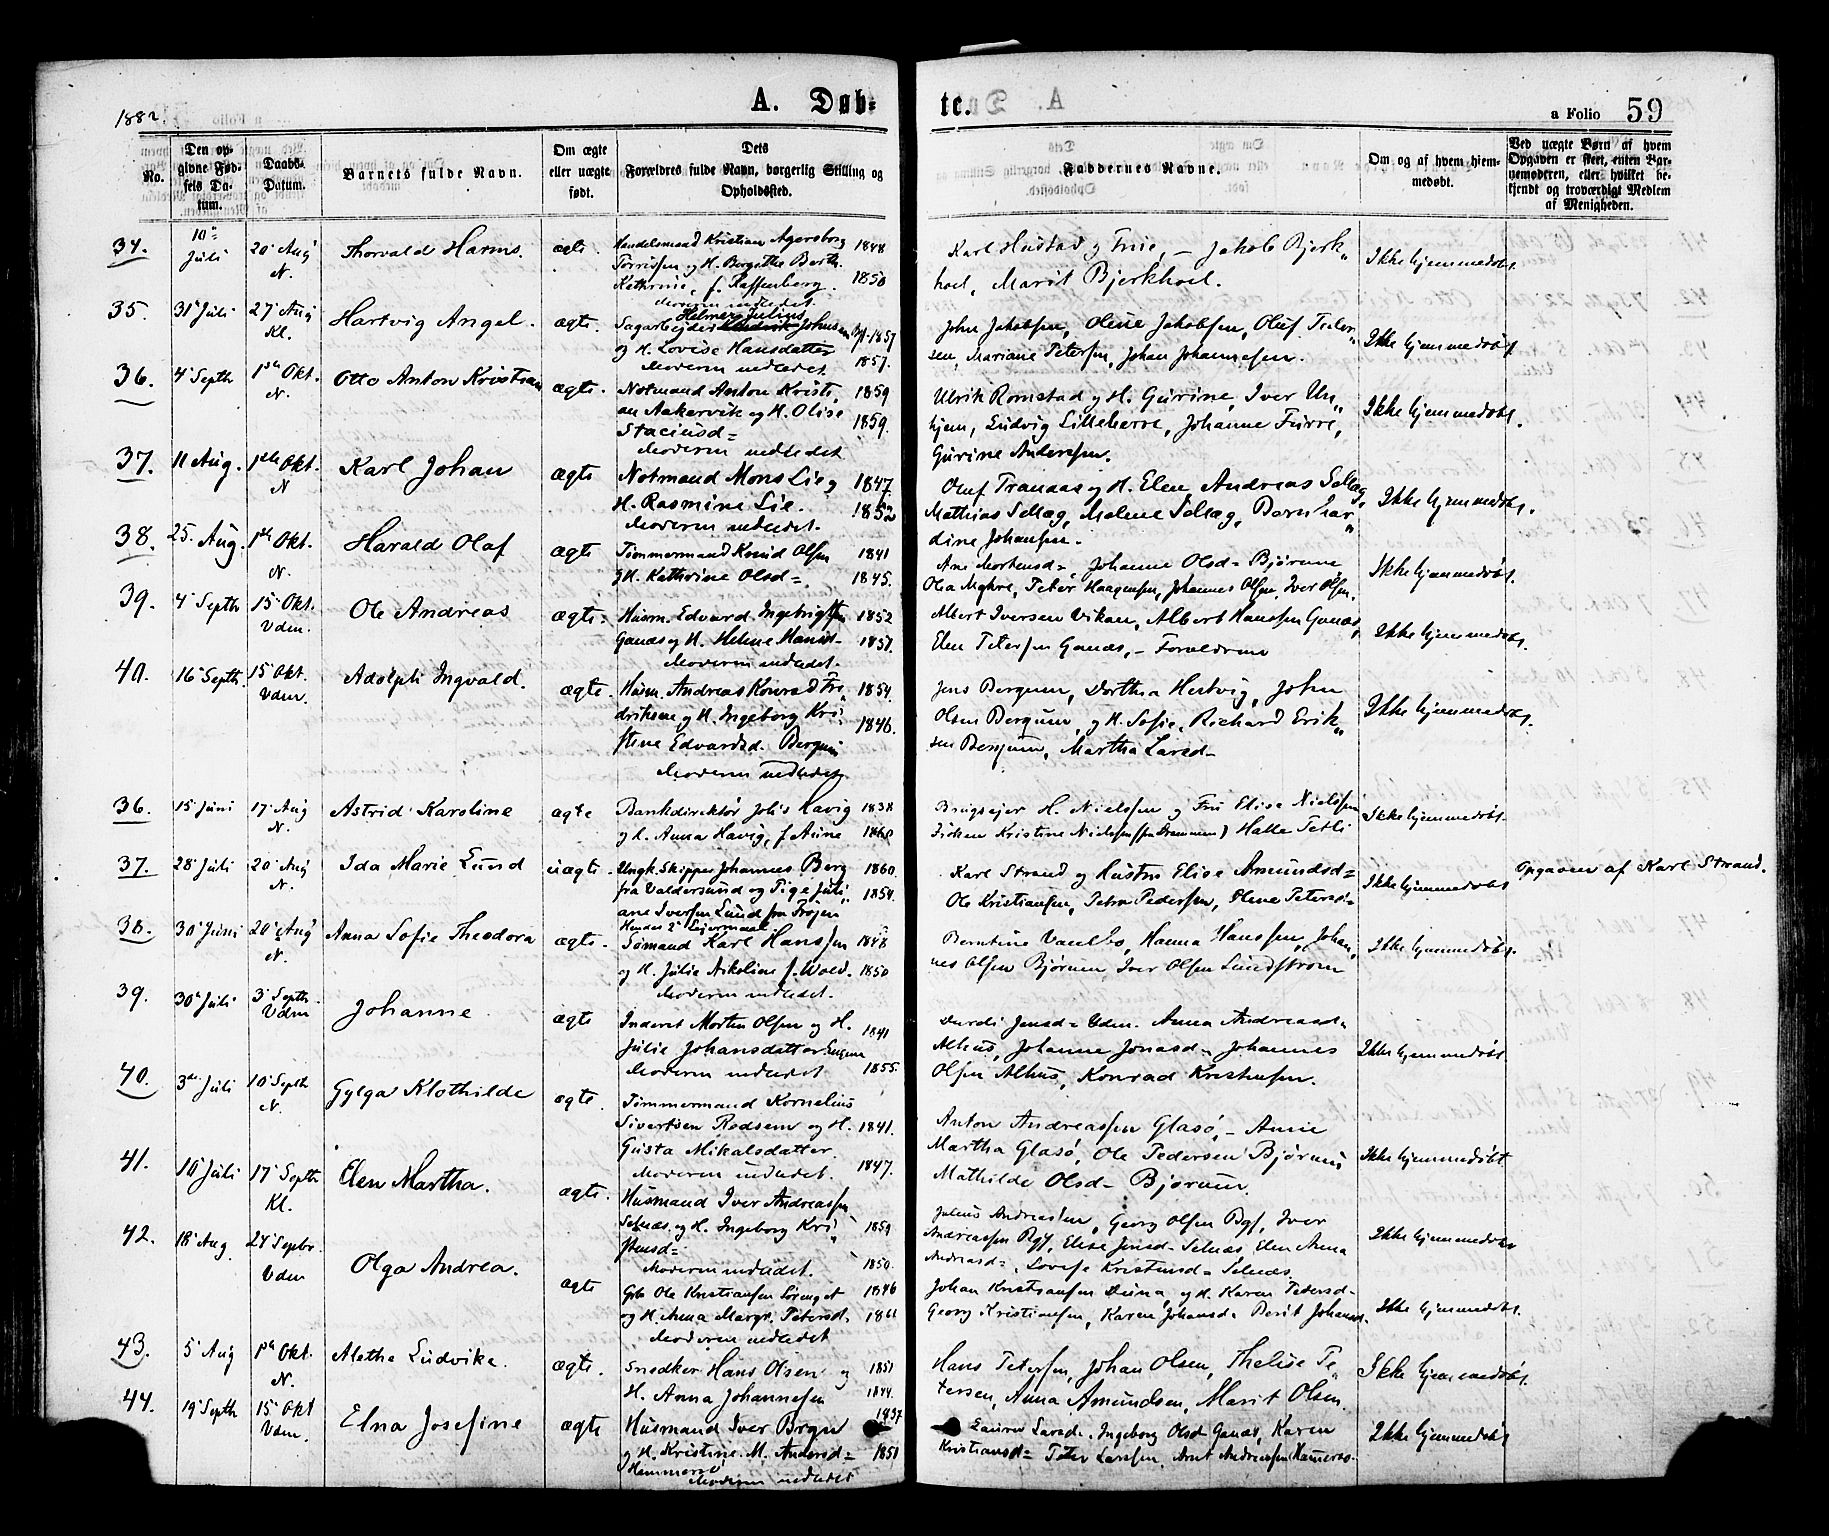 1882.
A. Døb-
te.
a Folio 59
No.
Den op-
givne Fød-
sels Da-
tum.
Daabs-
Datum.
Barnets fulde Navn.
Om ægte
eller uægte
født.
Dets
Forældres fulde Navn, borgerlig Stilling og
Opholdssted.
Faddernes Navne.
Om og af hvem hjem-
medøbt.
Ved uægte Børn af hvem
Opgaven er skeet, enten Bar-
nemoderen, eller hvilket be-
kjendt og troværdigt Medlem
af Menigheden.
34. 10 Juli 20 Aug N. Thorvald Harms. ægte.
Handelsmand Kristian Agersborg 1848
Torrissen og H. Borgithe Berth.
Kathrine, f. 1850
Moderen indledet.
Karl Hustad og Frue, – Jakob Bjerk-
hoel, Marit Bjerkhoel.
Ikke hjemmedøbt.
35. 31 Juli 27 Aug Kl. Hartvig Angel. ægte.
Helmer Julius
Sagarbejder Johnsen 1857
og H. Lovise Hansdatter
Moderen indledet 1857.
John Jakobsen, Oline Jakobsen, Oluf Peder-
sen, Mariane Petersen, Johan Johannesen.
Ikke hjemmedøbt
36. 4 Septb 1ste Okt. N. Otto Anton Kristian ægte.
Notmand Anton Kristi- 1859
an Aakervik og H. Olise 1859.
Staciusd=
Moderen indledet
Ulrik Romstad og H. Gurine, Iver Un-
hjem, Ludvig Lilleherre, Johanne Furre,
Gurine Anderssen.
Ikke hjemmedøbt.
37. 11 Aug. 1ste Okt. N Karl Johan ægte
Notmand Mons Lie og 1847
H. Rasmine Lie. 1852
Moderen indledet.
Oluf Tranaas og H. Elen Andreas Selleg,
Mathias Selleg, Malene Selleg, Bernhar-
dine Johansen.
Ikke hjemmedøbt.
38. 25. Aug. 1ste Okt. N. Harald Olaf ægte
Tømmermand Knud Olsen 1841
og H. Kathrine Olsd=. 1845.
Ane Mortensd= Johanne Olsd= Bjørum,
Ola Myhre, Peter Haagensen, Johannes Olsen, Iver Olsen.
Ikke hjemmedøbt.
39. 4 Septb 15 Okt. Vdm. Ole Andreas ægte.
Husm. Edvard Ingebrigtsen 1852
Ganæs og H. Helene Hansd- 1857.
Moderen indledet.
Albert Iversen Vikan, Albert Hanssen Ganæs,
Elen Petersen Ganæs, – Forældrene
Ikke hjemmedøbt.
40. 16 Septb. 15 Okt. Vdm. Adolph Ingvald. ægte.
Husm. Andreas Konrad Fre- 1854.
driksen og H. Ingeborg Kri- 1846.
stine Edvardsd. Bergum
Moderen indledet.
Jens Bergum, Dorthea Hestvig, John
Olsen Bergum, og H. Sofie, Richard Erik-
sen Bergum, Martha Larsd-
Ikke hjemmedøbt.
36. 15 Juni 17 Aug N. Astrid Karoline ægte
Bankdirektør Johs Havig 1838
og H. Anna Havig, f. Aune 1860
Brugsejer H. Nielssen og Fru Elise Nielssen
Frøken Kristine Nielssen (fra Drammen) Halle Petli
Ikke hjemmedøbt.
37. 28 Juli 20 Aug N. Ida Marie Lund uægte.
Ungk. Skipper Johannes Berg 1860.
fra Valdersund og Pige Juli- 1854.
ane Iversen Lund fra Frøjen
Hendes 2 Lejermaal
Karl Strand og Hustru Elise Amundsd=
Ole Kristiansen, Petra Pedersen, Oline Petersd=
Ikke hjemmedøbt
Opgaven af Karl Strand.
38. 30 Juni 20 Aug N. Anna Sofie Theodora ægte.
Sømand Karl Hanssen 1848
og H. Julie Nikoline f. Wold. 1850
Moderen indledet.
Berntine Hanna Hanssen, Johan-
nes Olsen Bjørum Iver Olsen Lundstrøm
Ikke hjemmedøbt.
39. 30 Juli 3 Septb. Vdm Johanne ægte
Inderst Morten Olsen og H. 1841
Julie Johansdatter
Moderen indledet 1855.
Jensd= Vdm. Anna Andreasd-
Alhus, Johanne Jonasd- Johannes
Olsen Alhus, Konrad Kristensen.
Ikke hjemmedøbt
40. 3 Juli 10 Septb N. Gylga Klothilde ægte.
Tømmermand Kornelius
Sivertsen Rødsem og H. 1841.
Gusta Mikalsdatter.
Moderen indledet. 1847.
Anton Andreassen Glasø, – Anne
Martha Glasø, Ole Pedersen Bjørum
Mathilde Olsd- Bjørum.
Ikke hjemmedøbt
41. 10 Juli 17 Septb Kl. Elen Martha. ægte.
Husmand Iver Andreassen
Selnæs. og H. Ingeborg Kri- 1859
stensd=
Moderen indledet. 1850.
Julius Andreassen, Georg Olsen Rgf, Iver
Andreassen Rgf, Elise Jensd- Selnæs, Elen Anna
Andreasd=, Lovise Kristensd= Selnæs.
Ikke hjemmedøbt
42. 18 Aug. 24 Septbr. Vdm Olga Andrea. ægte
Gbr Ole Kristiansen 1846
og H. Anna Margr. Petersd.
Moderen indledet
Johan Kristiansen Duna, og H. Karen Pedersd-
Georg Kristiansen, Karen Johansd= Berit Johansd.
Ikke hjemmedøbt.
43. 5 Aug 1ste Okt. N. Alethe Ludvika. ægte.
Snedker Hans Olsen og 1851
H. Anna Johannesen 1844.
Hans Petersen, Johan Olsen, Thelise Pe-
tersen, Anna Amundsen, Marit Olsen
Ikke hjemmedøbt.
44. 19 Septb 15 Okt Vdm. Elna Josefine ægte
Husmand Iver Bryn 1837
og H. Kristine. M. Andersd= 1851
Hammeraas
Moderen indledet
Laura Larsd. Ingeborg Olsd Ganæs, Karen
Kristiansd= Peter Larssen, Arnt Andreassen Hameraas-
Ikke hjemmedøbt